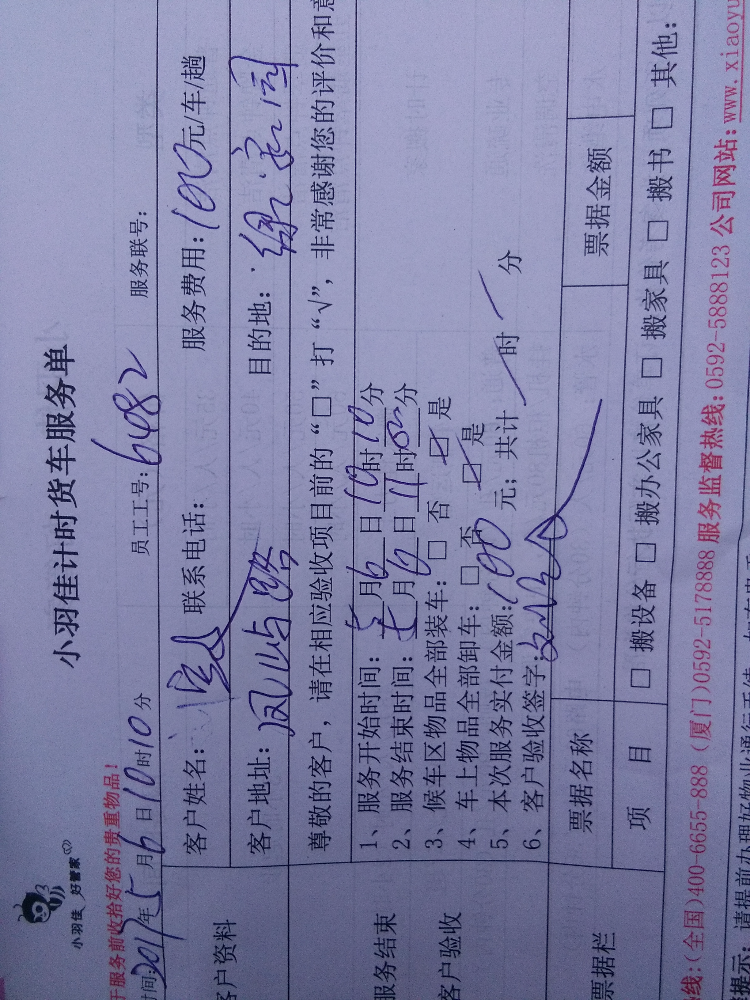 小羽佳 好管家
小羽佳计时货车服务单
服务前收拾好您的贵重物品!
时间:2017年5月6日10时10分 员工工号:6482 服务联号:
客户资料
客户姓名: 联系电话: 服务费用:100元/车/趟
客户地址:凤屿路 目的地:
尊敬的客户，请在相应验收项目前的“□”打“√”，非常感谢您的评价和意
服务结束
客户验收
1、服务开始时间: 月6日10时10分
2、服务结束时间: 月6日11时00分
3、候车区物品全部装车:□ 否 ☑ 是
4、车上物品全部卸车:□ 否 ☑ 是
5、本次服务实付金额:100元; 共计 时 分
6、客户验收签字:
票据栏
票据名称 票据金额
项 目 □ 搬设备 □ 搬办公家具 □ 搬家具 □ 搬书 □ 其他:
线:(全国)400-6655-888 (厦门)0592-5178888 服务监督热线:0592-5888123 公司网站:www.xiaoyu
提示: 请提前办理好物业通行手续